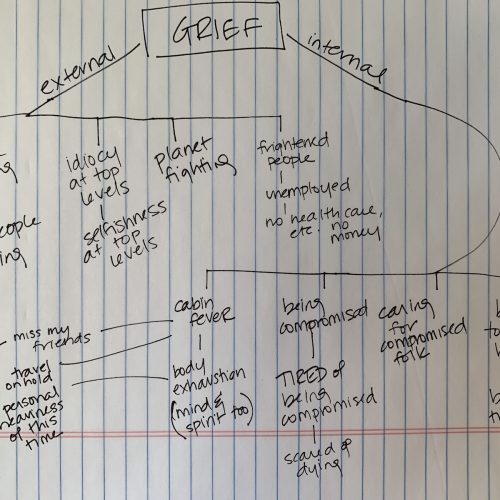 GRIEF
external
internal
idiocy
at top
levels
selfishness
at top
levels
planet
fighting
frightened
people
unemployed
no health care,
etc. no
money
cabin
fever
miss my
friends
travel
on hold
personal
heaviness
of this
time
body
exhaustion
(mind &
spirit too)
being
compromised
TIRED of
being
compromised
scared of
dying
caring
for
compromised
folk